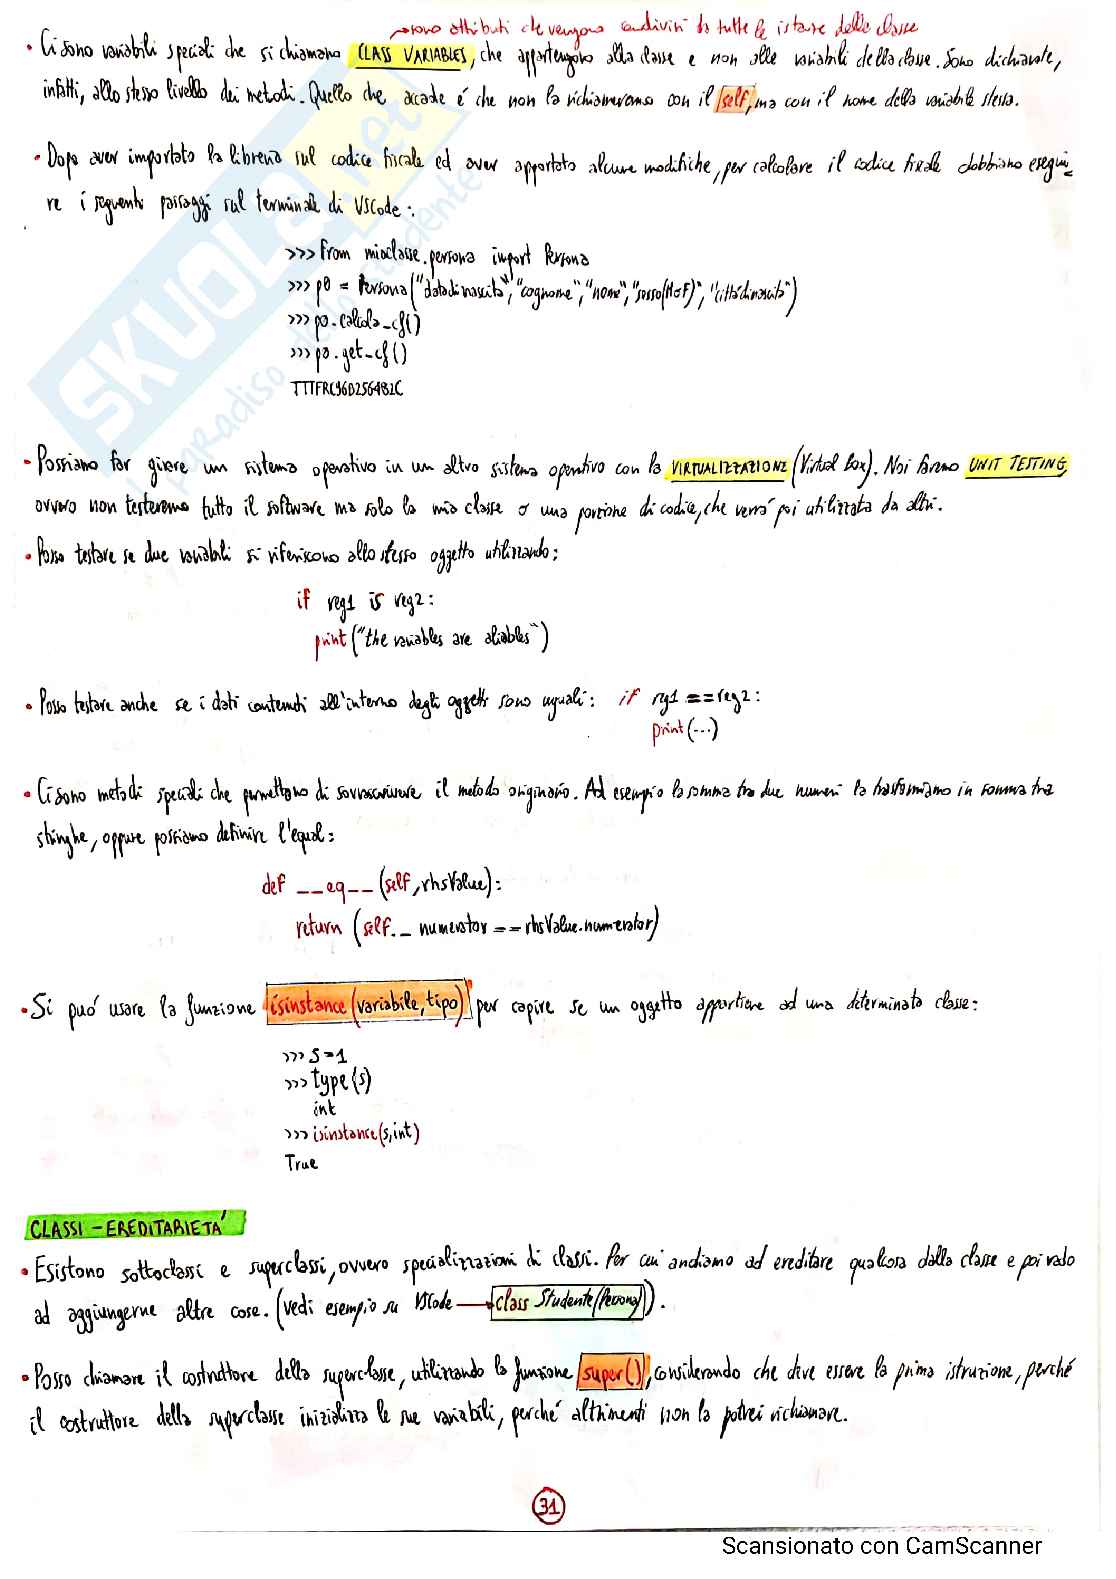 →sono attributi che vengono condivisi da tutte le istanze della classe
• Ci sono variabili speciali che si chiamano CLASS VARIABLES, che appartengono alla classe e non alle variabili della classe. Sono dichiarate,
infatti, allo stesso livello dei metodi. Quello che accade é che non la richiameremo con il self, ma con il nome della variabile stessa.
• Dopo aver importato la libreria sul codice fiscale ed aver apportato alcune modifiche, per calcolare il codice fiscale dobbiamo esegui-
re i seguenti passaggi sul terminale di VSCode:
>>> from mioclasse.persona import Persona
>>> p0 = Persona("datadinascita", "cognome", "nome", "sesso(MoF)", "cittàdinascita")
>>> p0.calcola_cf()
>>> p0.get_cf()
TTTFRC96D25G482C
• Possiamo far girare un sistema operativo in un altro sistema operativo con la VIRTUALIZZAZIONE (Virtual Box). Noi faremo UNIT TESTING,
ovvero non testeremo tutto il software ma solo la mia classe o una porzione di codice, che verrá poi utilizzata da altri.
• Posso testare se due variabili si riferiscono allo stesso oggetto utilizzando:
if reg1 is reg2:
print("the variables are aliables")
• Posso testare anche se i dati contenuti all'interno degli oggetti sono uguali: if rg1 == reg2:
print(...)
• Ci sono metodi speciali che permettono di sovrascrivere il metodo originario. Ad esempio la somma tra due numeri la trasformiamo in somma tra
stringhe, oppure possiamo definire l'equal:
def __eq__ (self, rhsValue):
return (self._ numerator == rhsValue.numerator)
• Si puó usare la funzione isinstance(variabile, tipo) per capire se un oggetto appartiene ad una determinata classe:
>>> s=1
>>> type(s)
int
>>> isinstance(s,int)
True
CLASSI - EREDITARIETÁ
• Esistono sottoclassi e superclassi, ovvero specializzazioni di classi. Per cui andiamo ad ereditare qualcosa dalla classe e poi vado
ad aggiungerne altre cose. (vedi esempio su VSCode → class Studente(Persona)).
• Posso chiamare il costruttore della superclasse, utilizzando la funzione super(), considerando che deve essere la prima istruzione, perché
il costruttore della superclasse inizializza le sue variabili, perché altrimenti non la potrei richiamare.
31
Scansionato con CamScanner
SKUOLA.net
il paradiso dello studente